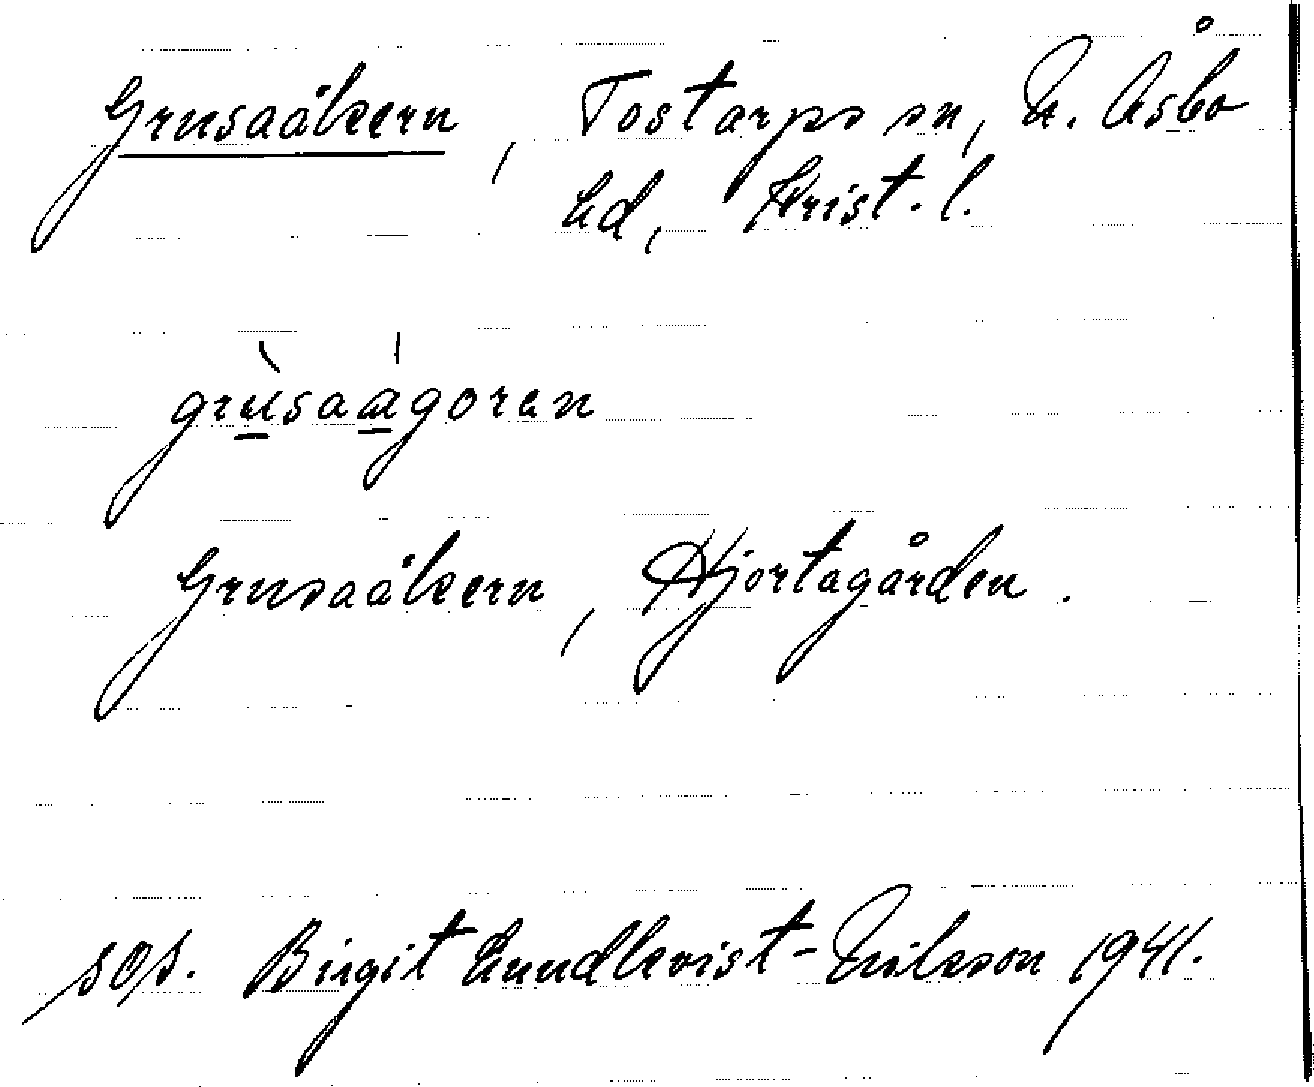 Grusaåkern, Tostarps sn, N. Åsbo
hd, Krist. l.
grùsaágoren
Grusaåkern, Hjortagården.
Birgit Lundkvist-Nilsson 1941.